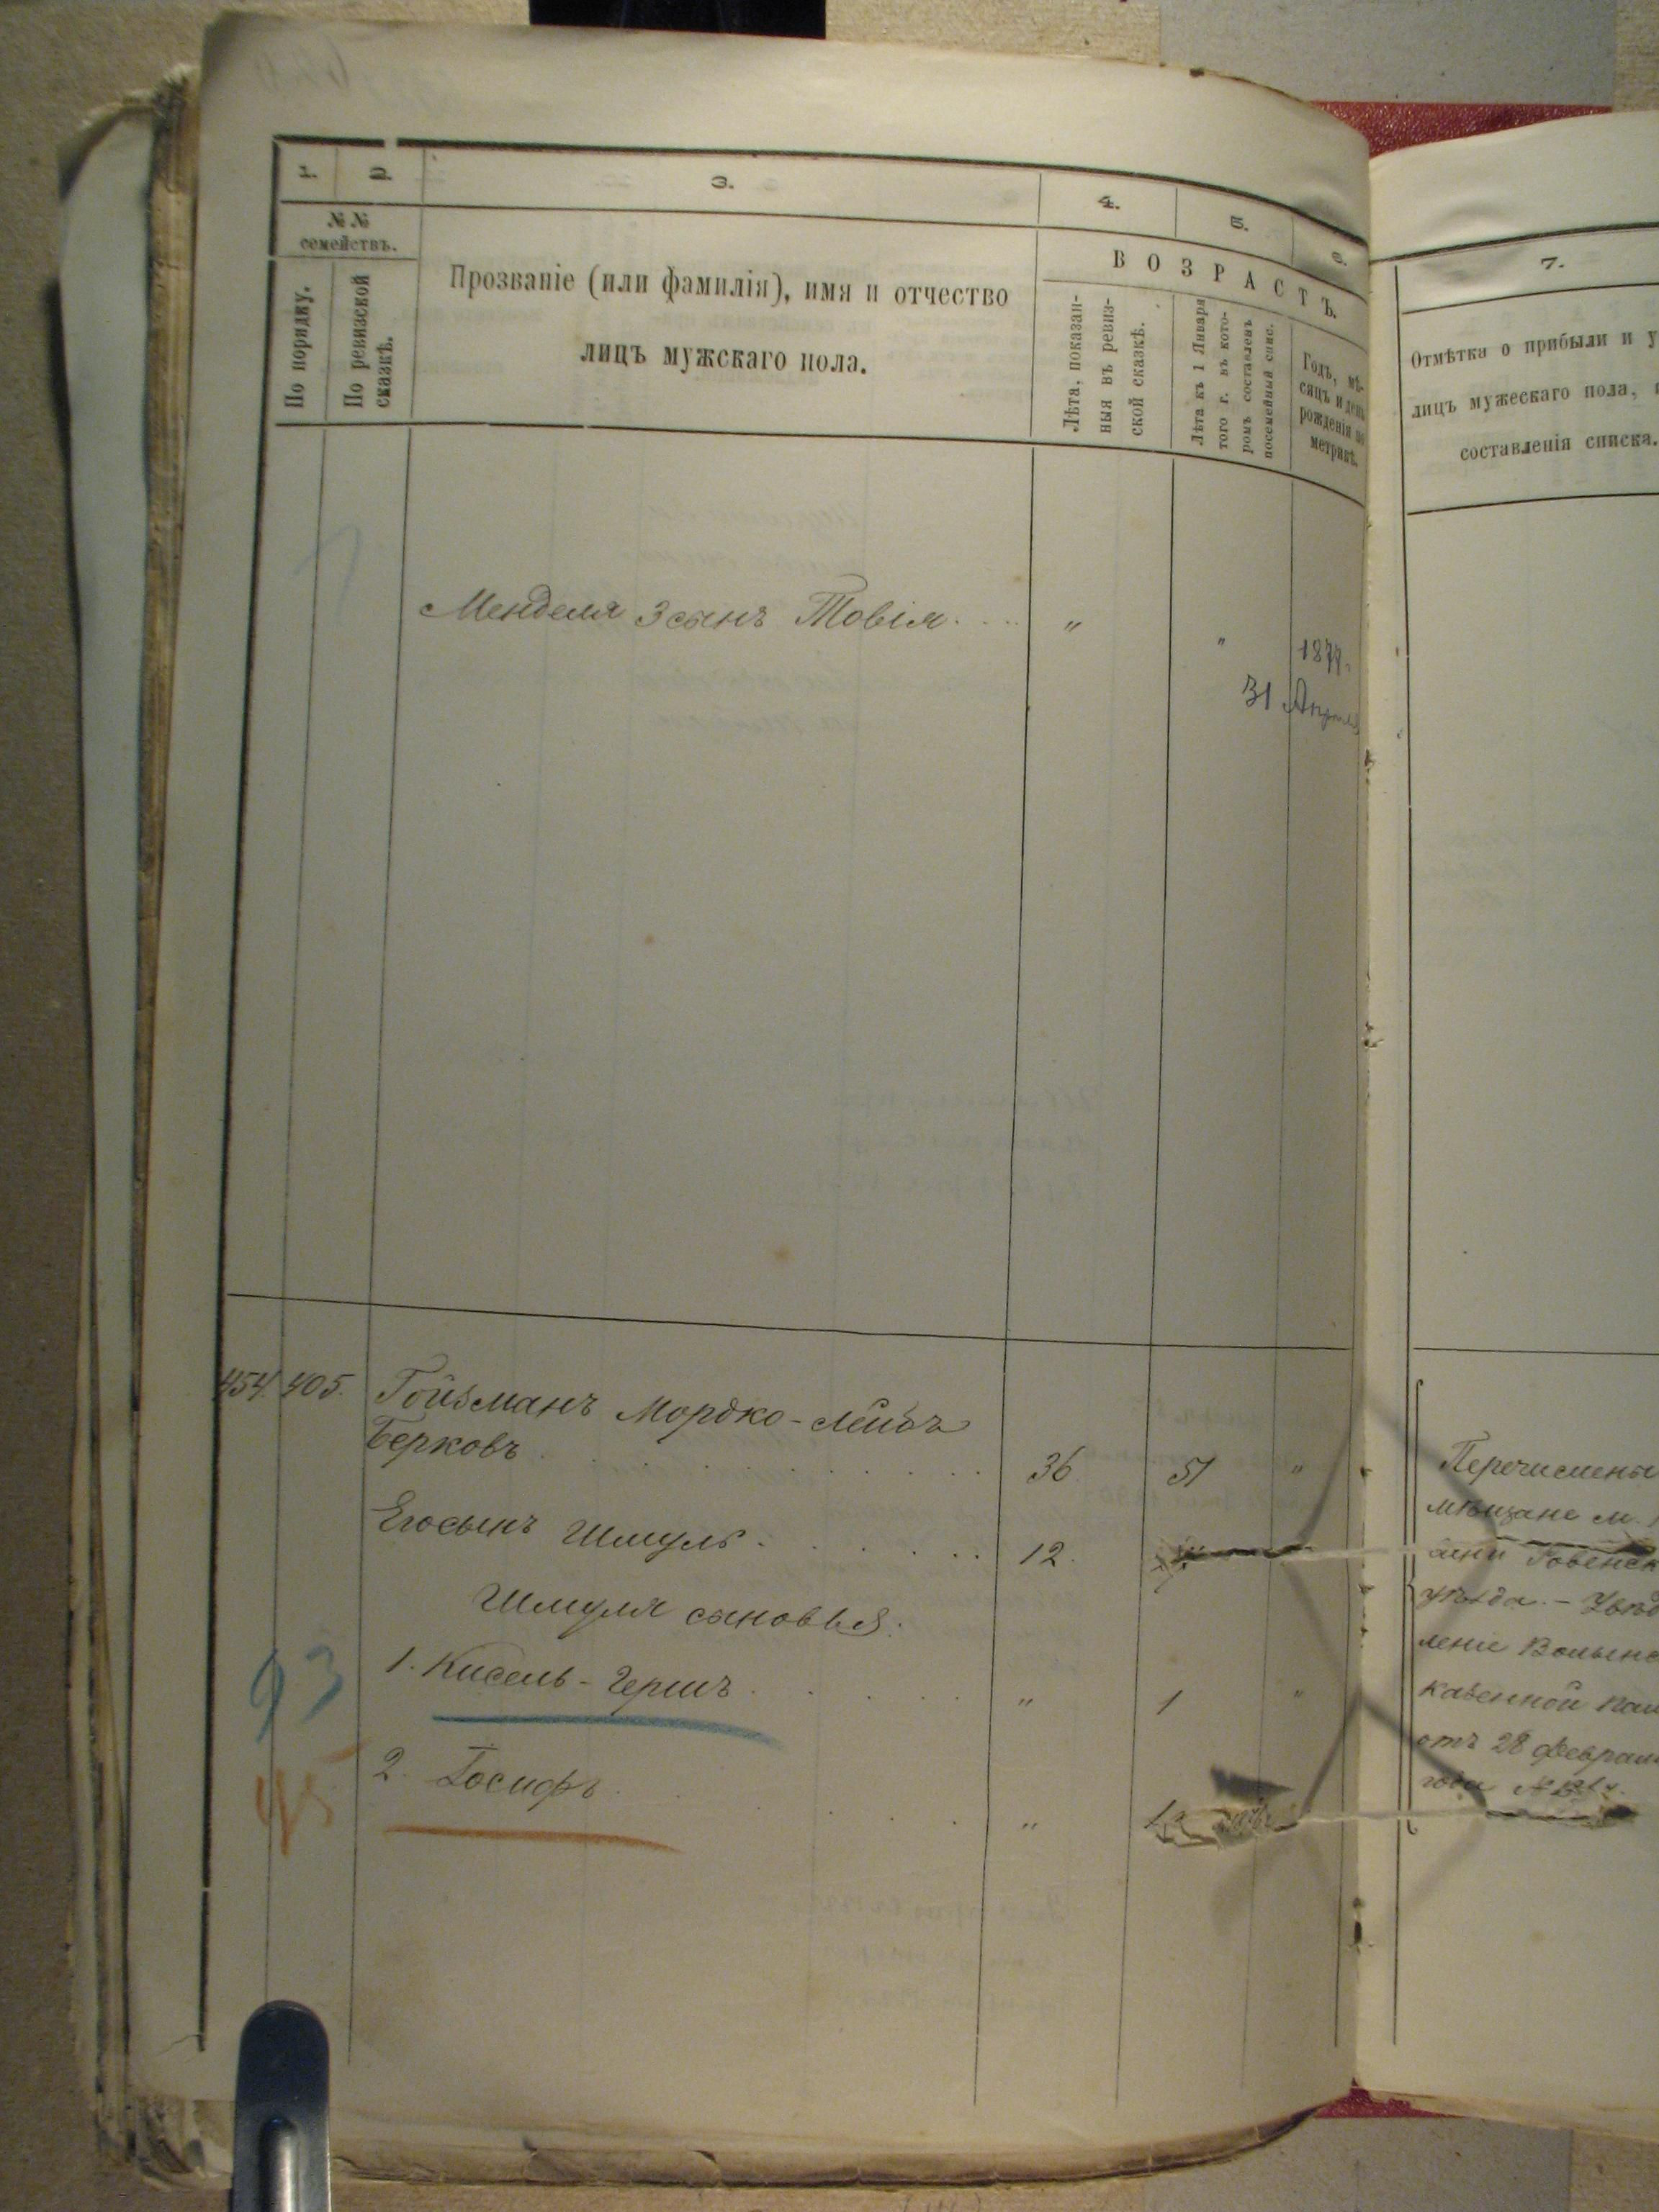 1. 2. 3. 4. 5. 6.
№ № семействъ.
По порядку.
По ревизской сказкѣ.
Прозваніе (или фамилія), имя и отчество
лицъ мужскаго пола.
ВОЗРАСТЪ.
Лѣта, показан-
ныя въ ревиз-
ской сказкѣ.
Лѣта къ 1 Января
того г. въ кото-
ромъ составленъ
посемейный спис.
Годъ, мѣ-
сяцъ и день
рожденія по
метрикѣ.
Менделя 3 сынъ Товія . . . " " 1877.
31 Апрѣля
454. 405. Гойзманъ Мордко-Лейба
Берковъ . . . 36 51 "
Его сынъ Шмуль . . . 12.
Шмуля сыновья:
93 1. Кисель-Герш . . . " 1 "
45 2. Іосифъ . . . "
7.
Отмѣтка о прибыли и
лицъ мужескаго пола,
составленія списка.
Перечислены
мѣщане м.
Ровенск
уѣзда. – Увѣд
леніе Волынс
казенной пал
отъ 28 Феврал
года №